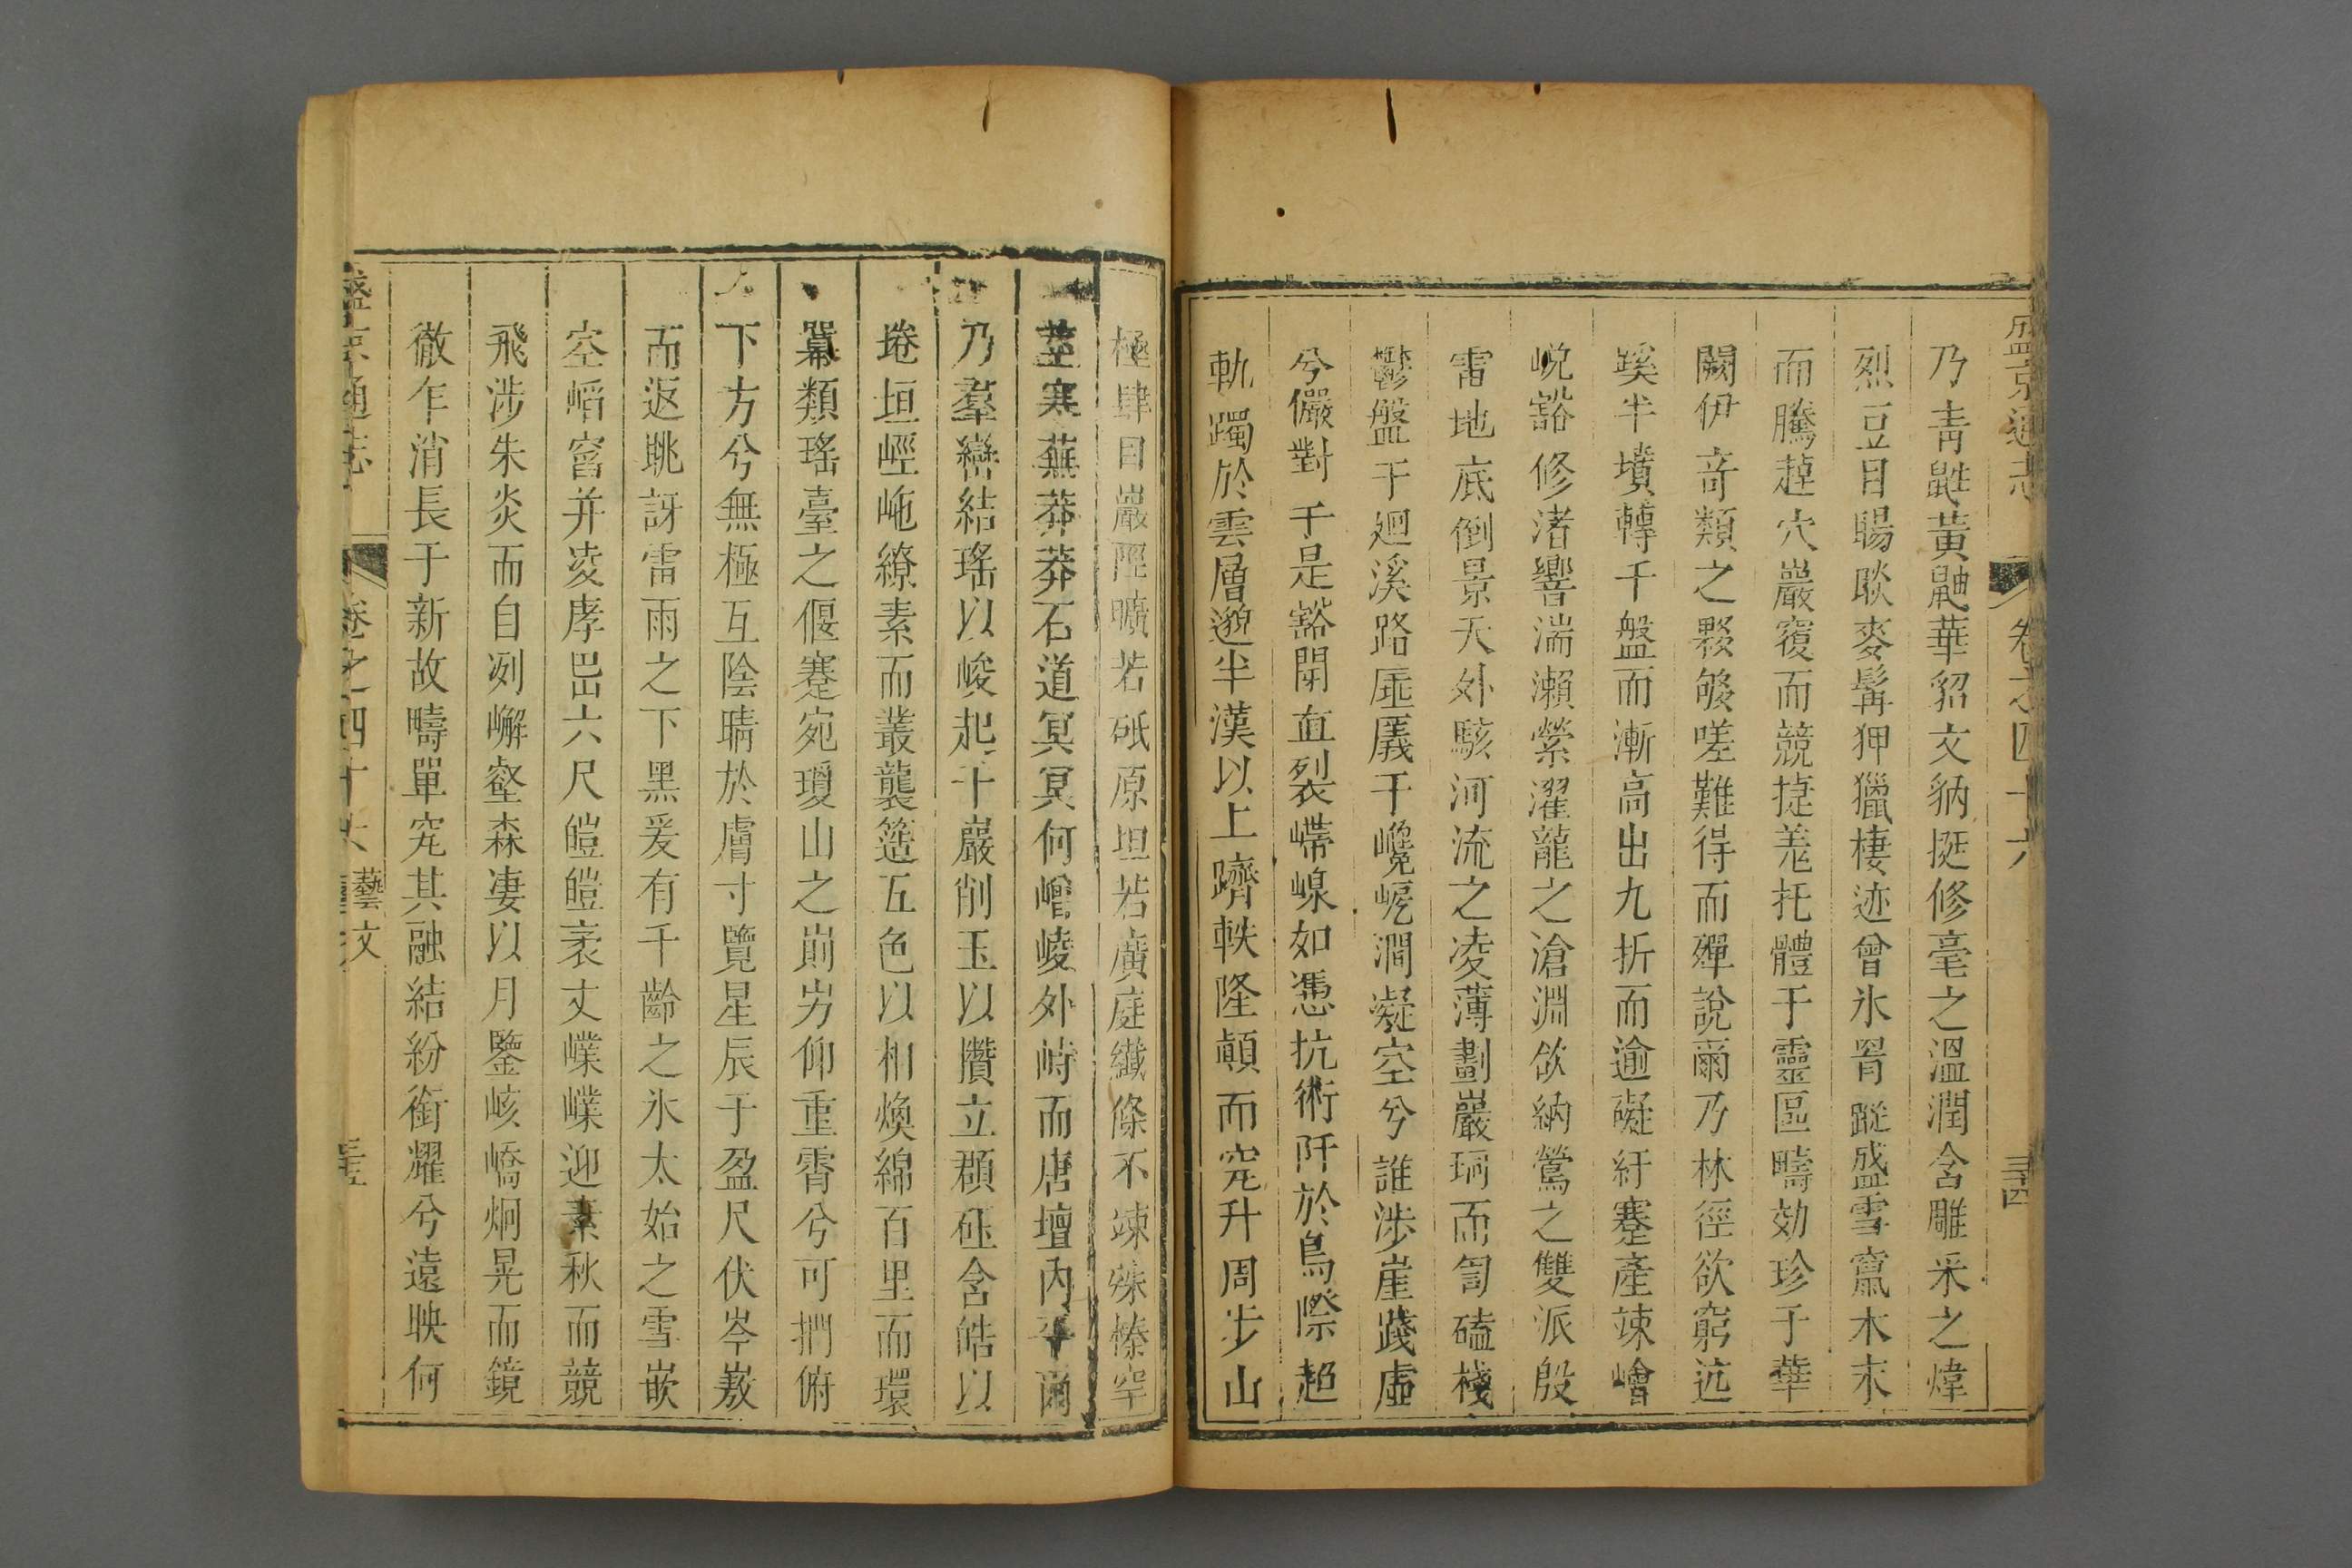 盛京通志 卷之四十六 三十四
乃青鼪黃鼬華貂文豽挺修毫之溫潤含雕采之煒
烈豆目睗睒麥髯狎獵棲迹曾氷罥蹤盛雪窵木末
而騰趠穴巖窽而競捷羗托體于靈區疇効珍于華
闕伊奇類之夥够嗟難得而殫說爾乃林徑欲窮迒
蹊半墳轉千盤而漸高出九折而逾礙紆蹇產竦嶒
崐豁修渚響湍瀨縈濯龍之滄淵欱納鶯之雙派殷
雷地底倒景天外駭河流之凌薄劃巖珂而訇磕棧
鬱盤于廻溪路厜㕒于巉㟴澗凝空兮誰涉崖踐虛
兮儼對于是豁閉直裂嵽嵲如慿抗術阡於鳥際超
軌躅於雲層邈半漢以上躋軼隆顛而䆒升周步山
極肆目巖陘曠若砥原坦若廣庭纎條不竦殊榛罕
莖寒蕪莽莽石道冥冥何嶒崚外峙而唐壇內平爾
乃羣巒結瑤以峻起千巖削玉以攢立頵砡含皓以
埢垣嶝崺繚素而叢襲簉五色以相煥綿百里而環
冪類瑤臺之偃蹇宛瓊山之崱屴仰重霄兮可捫俯
下方兮無極互陰晴於膚寸覽星辰于盈尺伏岑嶅
而返眺訝雷雨之下黑爰有千齡之氷太始之雪嵌
空㟉窞并凌孝岊六尺皚皚袤丈㠎㠎迎素秋而競
飛涉朱炎而自冽嶰壑森凄以月鑒峐嶠炯晃而鏡
徹乍消長于新故疇單䆒其融結紛銜耀兮遠映何
盛京通志 卷之四十六 藝文 三十五